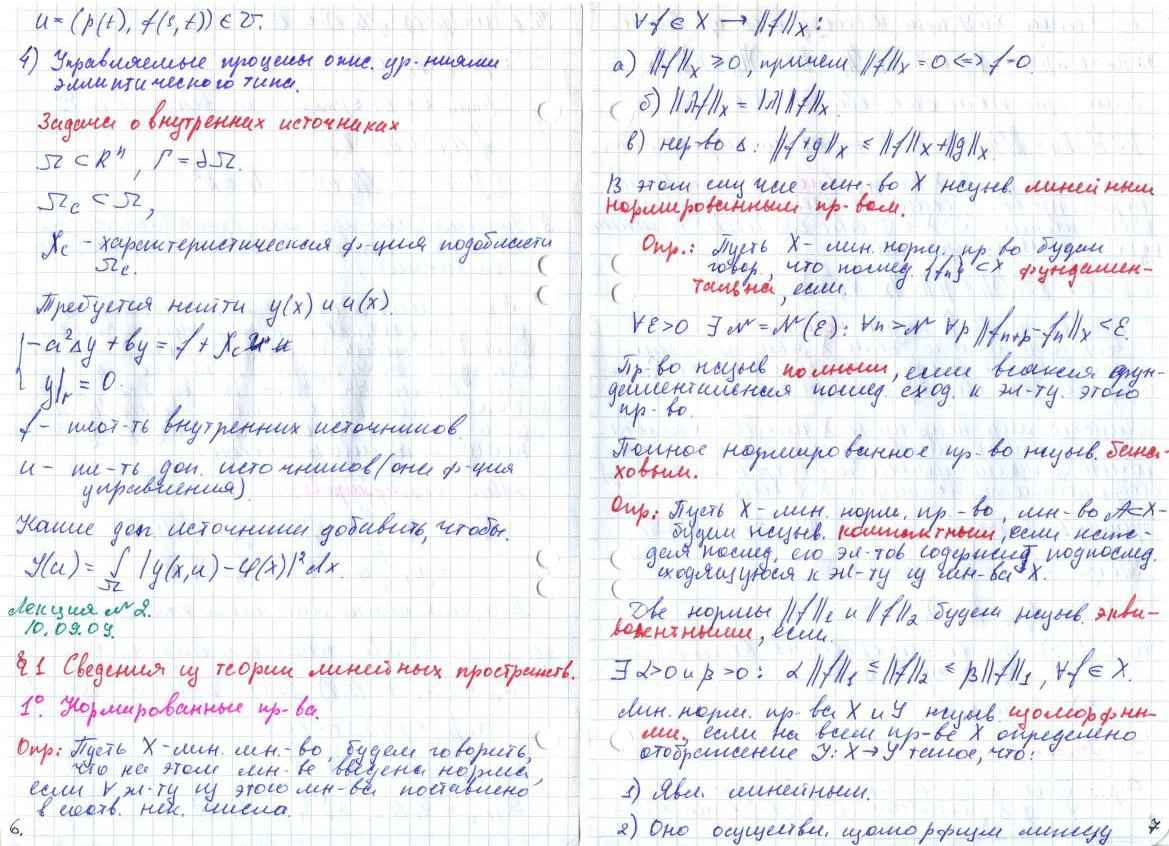 u = (p(t), f(s,t)) ∈ U.
4) Управляемые процессы опис. ур-ниями
эллиптического типа.
Задача о внутренних источниках
Ω ⊂ Rⁿ, Γ = ∂Ω.
Ωc ⊂ Ω,
χc - характеристическая ф-ция подобласти
Ωc.
Требуется найти y(x) и u(x).
{ -a²Δy + by = f + χc u
y|Γ = 0.
f - плот-ть внутренних источников.
u - пл-ть доп. источников (она ф-ция
управления).
Какие доп. источники добавить, чтобы.
J(u) = ∫Ω |y(x,u) - φ(x)|² dx.
Лекция №2.
10.09.09.
§1 Сведения из теории линейных пространств.
1°. Нормированные пр-ва.
Опр: Пусть X - лин. мн.-во, будем говорить,
что на этом мн-ве введена норма,
если ∀ эл-ту из этого мн-ва поставлено
в соотв. нек. числа.
6.
∀f ∈ X → ||f||X:
а) ||f||X ≥ 0, причем ||f||X = 0 <=> f = 0.
б) ||λf||X = |λ| ||f||X.
в) нер-во Δ: ||f+g||X ≤ ||f||X + ||g||X.
В этом случае мн-во X назыв. линейным
нормированным пр-вом.
Опр.: Пусть X - лин. норм. пр-во будем
говор, что послед. {fn} ⊂ X фундамен-
тальна, если.
∀ε>0 ∃ N = N(ε): ∀n > N ∀p ||fn+p - fn||X < ε.
Пр-во назыв полным, если всякая фун-
даментальная послед. сход. к эл-ту этого
пр-во.
Полное нормированное пр-во назыв. бана-
ховым.
Опр: Пусть X - лин. норм. пр-во, мн-во A⊂X-
будем назыв. компактным, если каж-
дая послед, его эл-тов содержит подпослед.
сходящуюся к эл-ту из мн-ва X.
Две нормы ||f||1 и ||f||2 будем назыв. экви-
валентными, если.
∃ α>0 и β>0: α||f||1 ≤ ||f||2 ≤ β||f||1, ∀f ∈ X.
Лин. норм. пр-ва X и Y назыв. изоморфны-
ми, если на всем пр-ве X определено
отображение J: X→Y такое, что:
1) Явл. линейным.
2) Оно осуществл. изоморфизм между
7